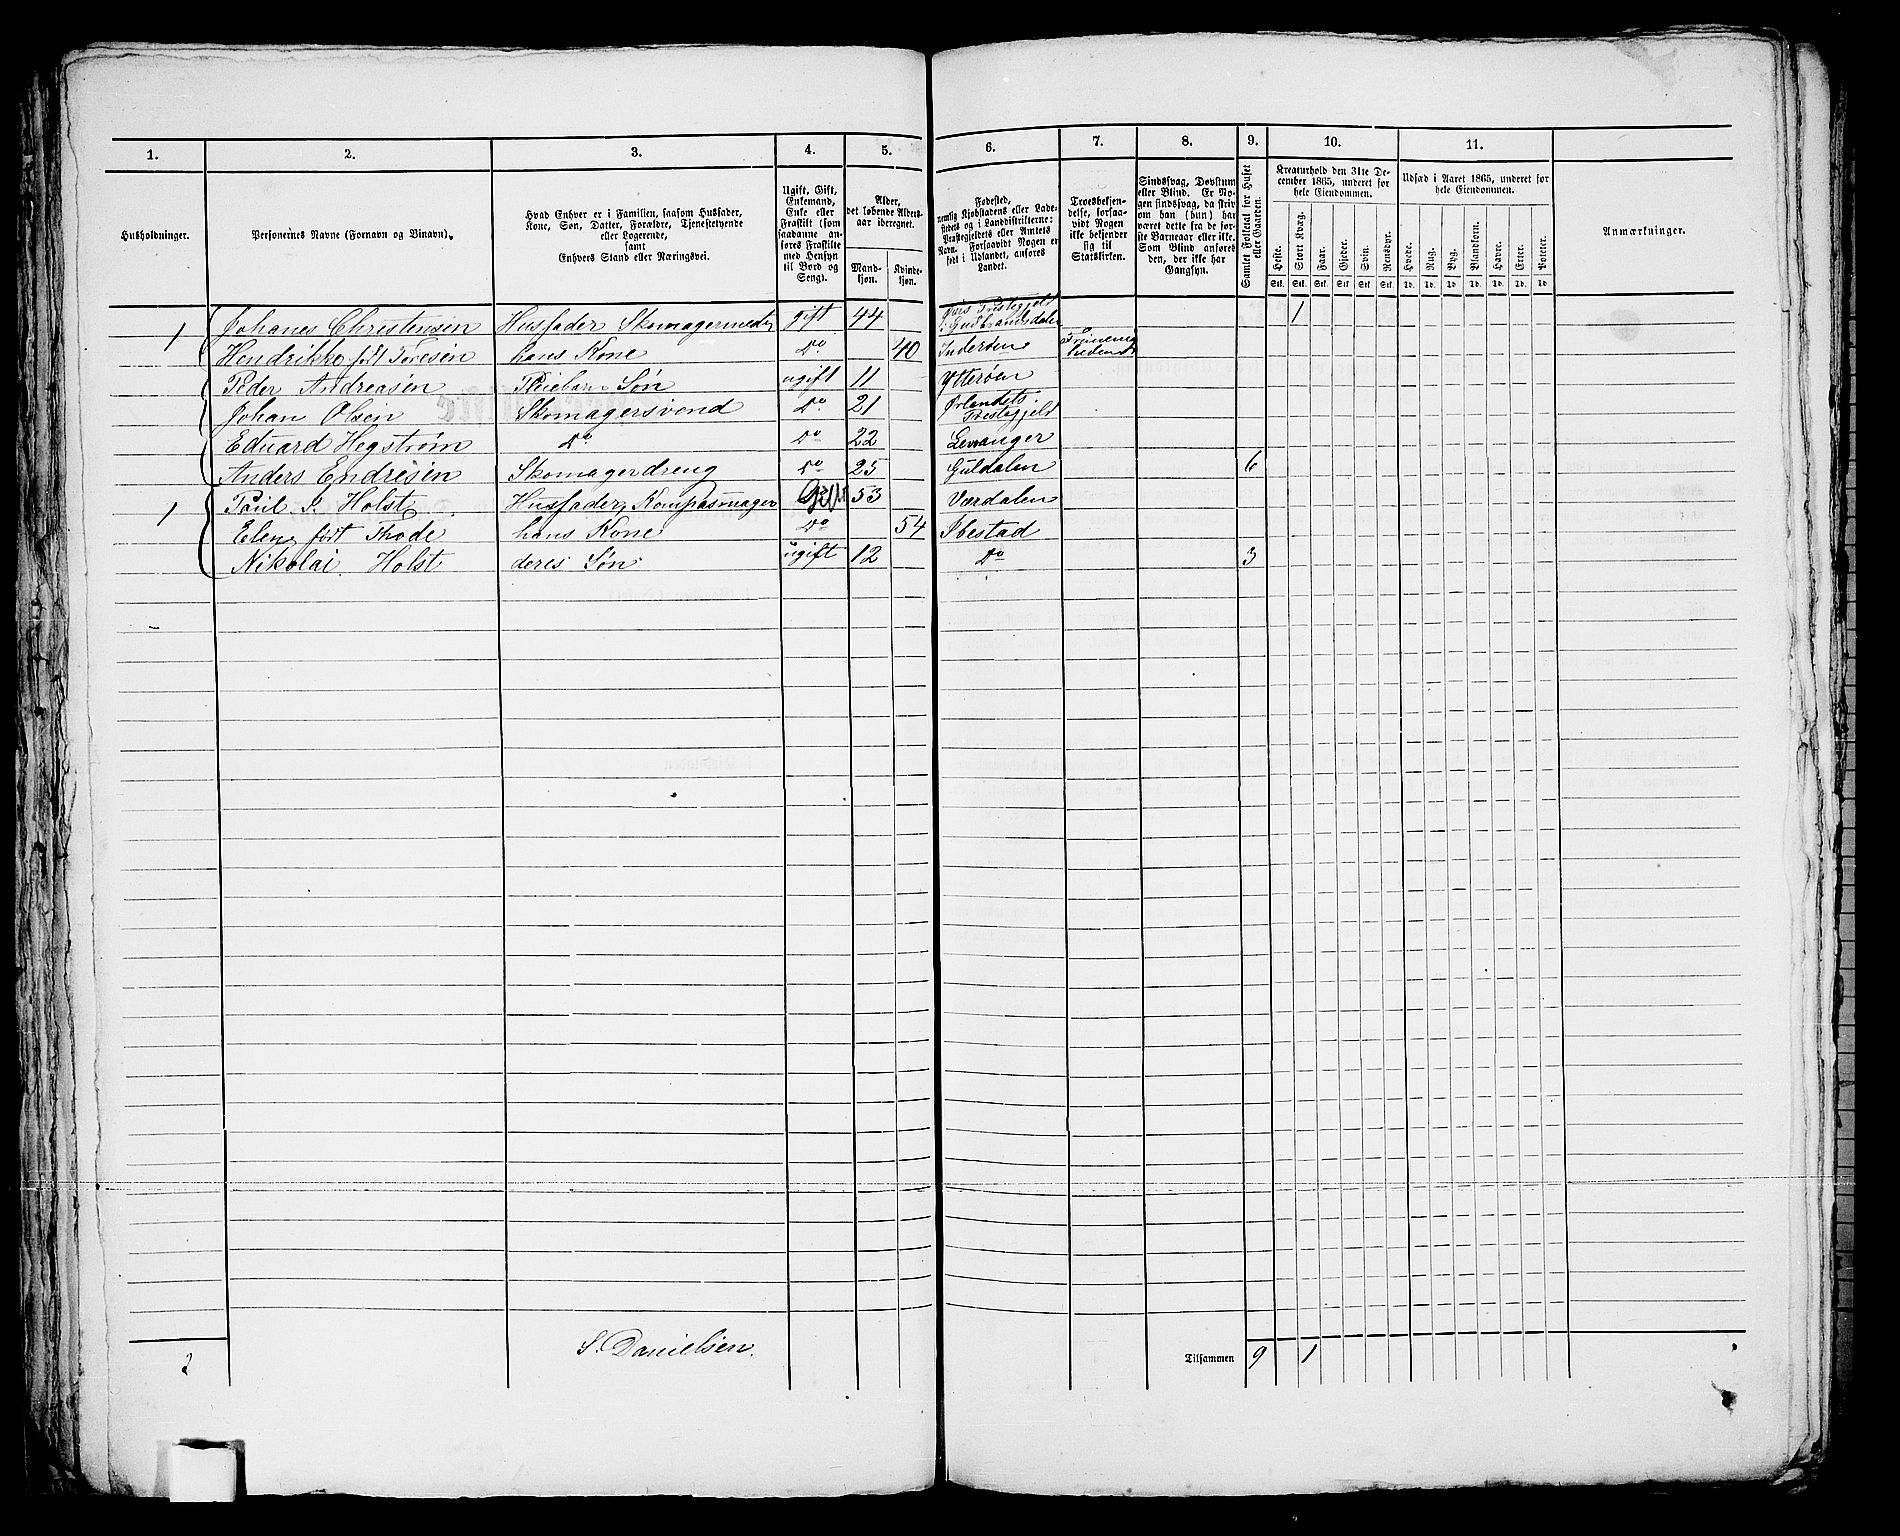 1. 2. 3. 4. 5. 6. 7. 8. 9. 10. 11.
Husholdninger.
Personernes Navne (Fornavn og Binavn).
Hvad Enhver er i Familien, saasom Husfader,
Kone, Søn, Datter, Forældre, Tjenestetyende
eller Logerende,
samt
Enhvers Stand eller Næringsvei.
Ugift, Gift,
Enkemand,
Enke eller
Fraskilt (som
saadanne an-
føres Fraskilte
med Hensyn
til Bord og
Seng).
Alder,
det løbende Alders-
aar iberegnet.
Mand-
kjøn.
Kvinde-
kjøn.
Fødested,
nemlig Kjøbstadens eller Lade-
stedets og i Landdistrikterne:
Præstegjeldets eller Amtets
Navn. Forsaavidt Nogen er
født i Udlandet, anføres
Landet.
Troesbekjen-
delse, forsaa-
vidt Nogen
ikke bekjender
sig til
Statskirken.
Sindssvag, Døvstum
eller Blind. Er No-
gen sindssvag, da skriv
om han (hun) har
været dette fra de før-
ste Barneaar eller ikke.
Som Blind anføres
den, der ikke har
Gangsyn.
Samlet Folketal for Huset
eller Gaarden.
Kreaturhold den 31te De-
cember 1865, underet for
hele Eiendommen.
Heste. Stort Kvæg. Faar. Gjeder. Svin. Rensdyr.
Stk. Stk. Stk. Stk. Stk. Stk.
Udsæd i Aaret 1865, underet for
hele Eiendommen.
Hvede. Rug. Byg. Blandkorn. Havre. Erter. Poteter.
Td. Td. Td. Td. Td. Td. Td.
Anmærkninger.
1 Johanes Christensen Husfader Skomagermester gift 44 Præstegjeld i Gudbrandsdalen 1
Hendrikke født Toresen hans Kone do 40 Inderøen
Peder Andreasen Pleiebarn Søn ugift 11 Ytterøen
Johan Olsen Skomagersvend do 21 Ørlandets Prestegjeld
Eduard Hegstrøm do do 22 Levanger
Anders Endresen Skomagerdreng do 25 Guldalen 6
1 Paul I. Holst Husfader, Kompasmager Gift 53 Værdalen
Elen født Thode hans Kone do 54 Ibestad
Nikolai Holst deres Søn ugift 12 do 3
2 S. Danielsen. Tilsammen 9 1